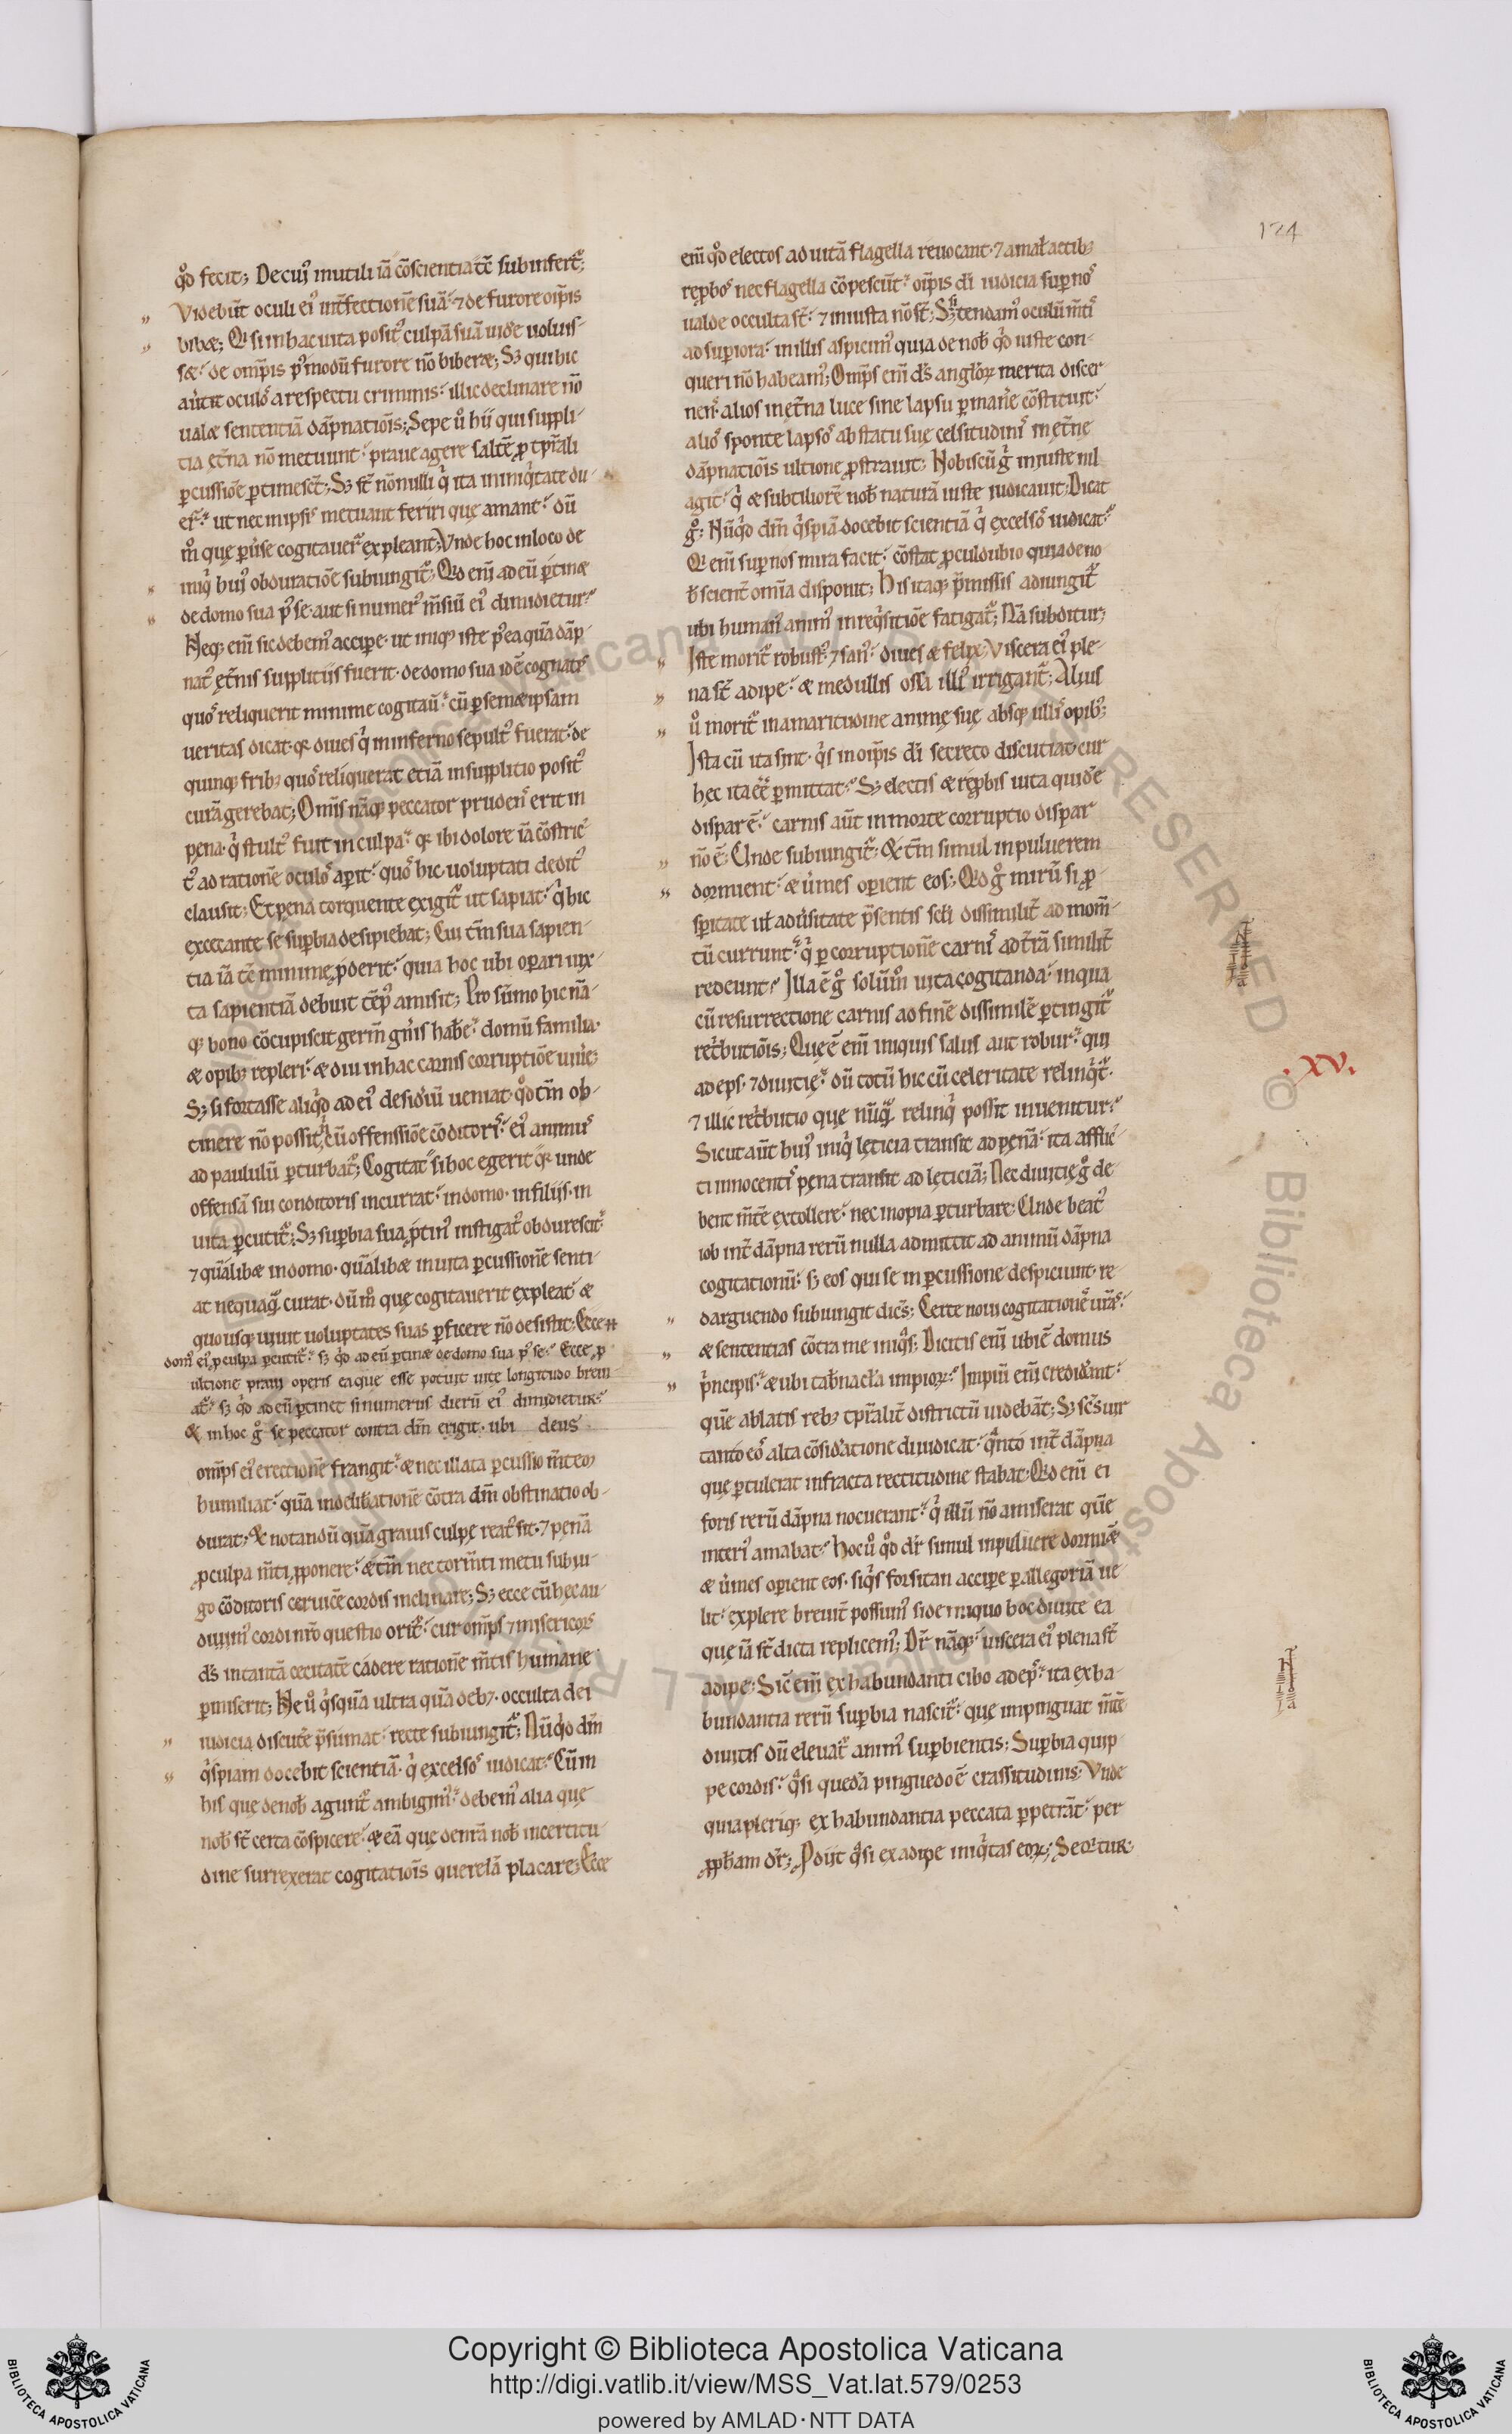 124
qđ fecit; De cuiꝰ inutili iā cōscientia tc̄ subinfert᷑;
Videbūt oculi eiꝰ int̄fectionē suā. ⁊ de furore oīp̄is
bibæ; Q si in hac uita positꝰ culpā suā uide uoluis-
sæ. de omp̄is pꝰmodū furore nō biberæ; Sꝫ qui hic
aūtit oculos a respectu criminis. illic declinare nō
ualæ sententiā dāpnatiōis; Sepe ū hii qui suppli-
tia et̄na nō metuunt. praue agere saltē ꝓ tp̄rali
ꝑcussiōe ꝑtimesct̄; Sꝫ st̄ nōnulli qͥ ita in iniqͥtate du-
ert᷑. ut nec in ipsis metuant feriri que amant. dū
m̊ que ꝑūse cogitauer̄ expleant; Vnde hoc in loco de
iniqͥ huiꝰ obduratiōe subiungit᷑; Qd eīm ad eū ꝑtinæ
de domo sua pꝰ se. aut si numerꝰ m̄siū eiꝰ dimidietur.
Neqꝫ eīm sic debemꝰ accipe. ut iniqꝰ iste pꝰ ea quā dāp-
natꝰ et̄nis supplitiis fuerit. de domo sua idē cognatos
quos reliquerit minime cogitaū. cū ꝑ semæipsam
ueritas dicat. qꝛ diues qͥ in inferno sepultꝰ fuerat. de
quinqꝫ fribꝫ quos reliquerat etiā in supplitio positꝰ
curā gerebat; Omīs nāqꝫ peccator prudens erit in
pena. qͥ stultꝰ fuit in culpa. qꝛ ibi dolore iā cōstric-
tꝰ ad rationē oculos aꝑit. quos hic uoluptati deditꝰ
clausit; Et pena torquente exigit᷑ ut sapiat. qͥ hic
excecante se suꝑbia desipiebat; Cui tm̄ sua sapien-
tia iā tc̄ minime ꝓderit. quia hoc ubi oꝑari iux-
ta sapientiā debuit tēpꝰ amisit; Pro sūmo hic nā-
qꝫ bono cōcupiscit germ̄ gn̄is habē. domū familia.
æ opibꝫ repleri. æ diu in hac carnis corruptiōe uiue;
Sꝫ si fortasse aliqͥd ad eiꝰ desid̄iū ueniat. qđ tm̄ ob-
tinere nō possit n̄ cū offensiōe cōditoris. eiꝰ animus
ad paululū ꝑturbat᷑; Cogitat si hoc egerit qꝛ unde
offensā sui conditoris incurrat. in domo. in filiis. in
uita ꝑcutit᷑; Sꝫ suꝑbia sua ꝓtinꝰ instigatꝰ obdurescit.
⁊ quālibæ in domo. quālibæ in uita ꝑcussionē senti-
at nequaqͣ curat. dū m̊ que cogitauerit expleat. æ
quousqꝫ uiuit uoluptates suas ꝑficere nō desistit; Ecce
domꝰ eiꝰ ꝓ culpa ꝑcutit᷑. sꝫ qd ad eū ꝑtinæ de domo sua pꝰ se. Ecce ꝓ
ultione praui operis ea que esse potuit uite longitudo breui-
at᷑. sꝫ qd ad eū ꝑtinet si numerus dierū eiꝰ dimidietur.
& in hoc g̊ se peccator contra dm̄ erigit. ubi deus
omp̄s eiꝰ erectionē frangit. æ nec illata ꝑcussio m̄tē
humiliat. quā in delib̄ationē cōtra dm̄ obstinatio ob-
durat. & notandū quā grauis culpe reatꝰ sit. ⁊ penā
ꝓ culpa m̄ti ꝓponere. & tm̄ nec torm̄ti metu sub iu-
go cōditoris ceruicē cordis inclinare; Sꝫ ecce cū hec au-
diuimꝰ cordi nr̄o questio orit᷑. cur omp̄s ⁊ misericors
ds̄ in tantā cecitatē cadere rationē m̄tis humane
ꝑmiserit; Ne ū qͥsquā ultra quā debꝫ. occulta dei
iudicia discutē p̄sumat. recte subiungit᷑; Nūqͥd dm̄
qͥspiam docebit scientiā. qͥ excelsos iudicat. Cū in
his que de nob̄ agunt᷑ ambigimꝰ. debemꝰ alia que
nob̄ st̄ certa cōspicere. & eā que de nrā nob̄ incertitu-
dine surrexerat cogitatiōis querelā placare; Ecce
eīm qđ electos ad uitā flagella reuocant. ⁊ a mal̄ actibꝫ
reꝓbos nec flagella cōpescūt. oīp̄is di iudicia suꝑ nos
ualde occulta st̄. ⁊ iniusta nō st̄; Sꝫ tendamꝰ oculū m̄tis
ad suꝑiora. in illis aspicimꝰ quia de nob̄ qđ iuste con-
queri nō habeamꝰ; Omp̄s eīm ds̄ angloꝝ merita discer-
nens. alios in et̄na luce sine lapsu ꝑmanē cōstituit.
alios sponte lapsos ab statu sue celsitudinis in et̄ne
dāpnatiōis ultione ꝓstrauit; Nobiscū g̊ iniuste nil
agit. qͥ æ subtiliorē nob̄ naturā iuste iudicauit; Dicat
g̊; Nūqͥd dm̄ qͥspiā docebit scientiā qͥ excelsos iudicat.
Q eīm suꝑ nos mira facit. cōstat ꝓculdubio quia de no-
b̄ scient̄ omīa disponit; His itaqꝫ p̄missis adiungit᷑
ubi humanꝰ animꝰ in reqͥsitiōe fatigat᷑; Nā subditur;
Iste morit᷑ robustꝰ. ⁊ sanꝰ. diues æ felix; Viscera eiꝰ ple-
na st̄ adipe. æ medullis ossa illiꝰ irrigant᷑; Alius
ū morit᷑ in amaritudine anime sue absqꝫ ullis opibꝫ;
Ista cū ita sint. qͥs in oīp̄is di secreto discutiat. cur
hec ita eē ꝑmittat. Sꝫ electis æ reꝓbis uita quidē
dispar ē. carnis aūt in morte corruptio dispar
nō ē; Unde subiungit᷑; & tm̄ simul in puluerem
dormient. æ ūmes oꝑient eos; Qd g̊ mirū si ꝓ-
sꝑitate ul̄ adūsitate p̄sentis scli dissimilit̄ ad mom̄-
tū currunt. qͥ ꝑ corruptionē carnis ad t̄rā similit̄
redeunt. Illa ē g̊ solūm̊ uita cogitanda. in qua
cū resurrectione carnis ad finē dissimilē ꝑtingit᷑
ret̄butiōis; Que ē eīm iniquis salus aut robur. qui
adeps. ⁊ diuitie. dū totū hic cū celeritate relinqͥt᷑.
⁊ illic ret̄butio que nūqͣ relinqͥ possit inuenitur.
Sicut aūt huiꝰ iniqͥ leticia transit ad penā. ita afflic-
ti innocentis pena transit ad leticiā; Nec diuitie g̊ de-
bent m̄tē extollere. nec inopia ꝑturbare; Unde beatꝰ
iob int̄ dāpna rerū nulla admittit ad animū dāpna
cogitationū. sꝫ eos qui se in ꝑcussione despiciunt. re-
darguendo subiungit dic̄s; Certe noui cogitationes ur̄as.
æ sententias cōtra me iniqͣs; Dicitis eīm ubi ē domus
p̄ncipis. æ ubi tab̄nacl̄a impioꝝ. Impiū eīm credid̄ant.
quē ablatis rebꝫ tp̄ralit̄ districtū uidebāt; Sꝫ scs̄ uir
tanto eos alta cōsid̄atione diiudicat. qͣnto int̄ dāpna
que ꝑtulerat infracta rectitudine stabat. Qd eīm ei
foris rerū dāpna nocuerant. qͥ illū nō amiserat quē
interiꝰ amabat. Hoc ū qđ dr̄ simul in puluere dormiæ
æ ūmes oꝑient eos. siqͥs forsitan accipe ꝑ allegoriā ue-
lit. explere breuit̄ possumꝰ si de iniquo hoc diuite ea
que iā st̄ dicta replicemꝰ; Dr̄ nāqꝫ. uiscera eiꝰ plena st̄
adipe. Sic̄ eīm ex habundanti cibo adeps. ita ex ha-
bundantia rerū suꝑbia nascit᷑. que impinguat m̄tē
diuitis dū eleuat᷑ animꝰ suꝑbientis; Suꝑbia quip-
pe cordis. qͣsi quedā pinguedo ē crassitudinis; Vnde
quia pleriqꝫ ex habundantia peccata ꝑpetrāt. per
ꝓph̄am dr̄; Ꝓdiit qͣsi ex adipe iniqͥtas eoꝝ; Seqͥtur.
.XV.
Copyright © Biblioteca Apostolica Vaticana
http://digi.vatlib.it/view/MSS_Vat.lat.579/0253
powered by AMLAD·NTT DATA